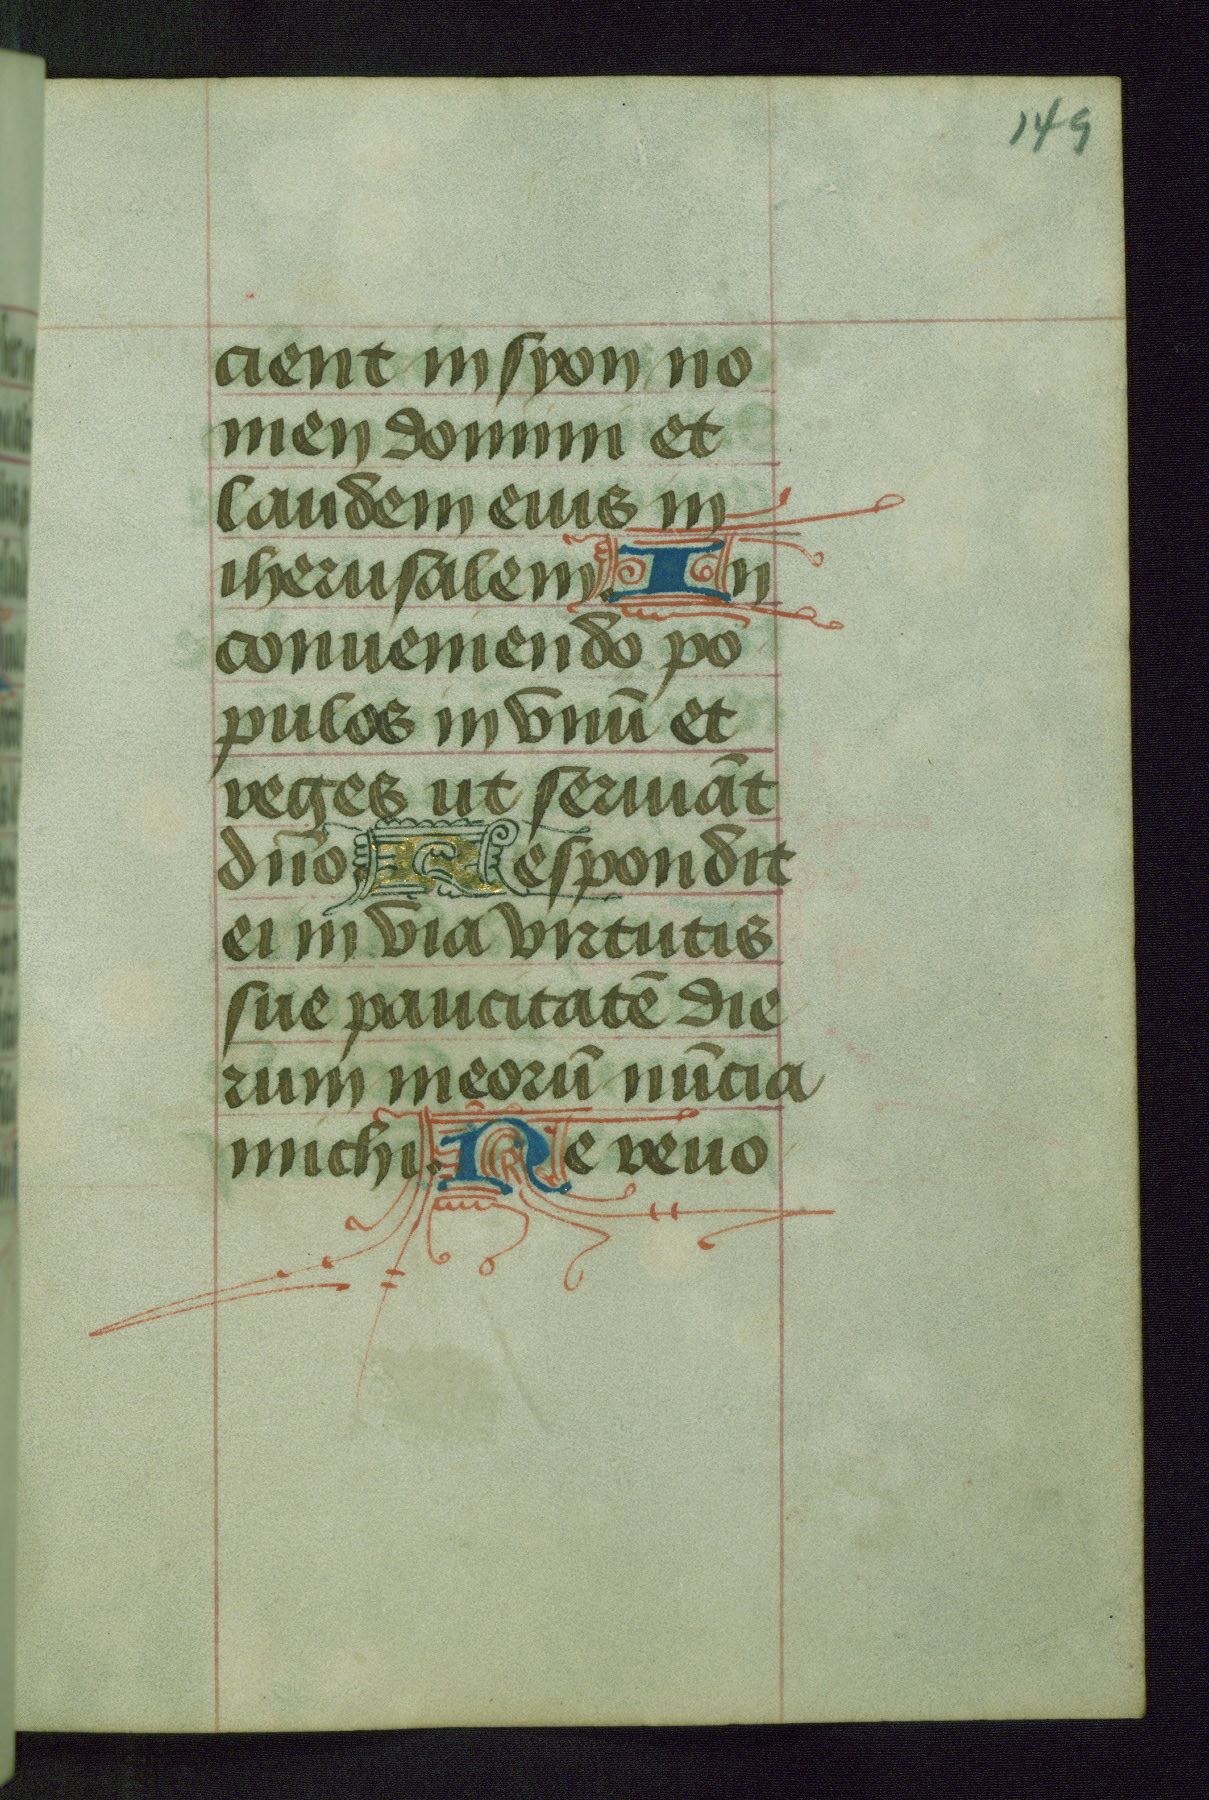 149
cient in syon no
men domini et
laudem eius in
iherusalem. In
conueniendo po
pulos in vnū et
reges ut seruiāt
dn̄o. Respondit
ei in via virtutis
sue paucitatē die
rum meorū nūcia
michi. Ne reuo